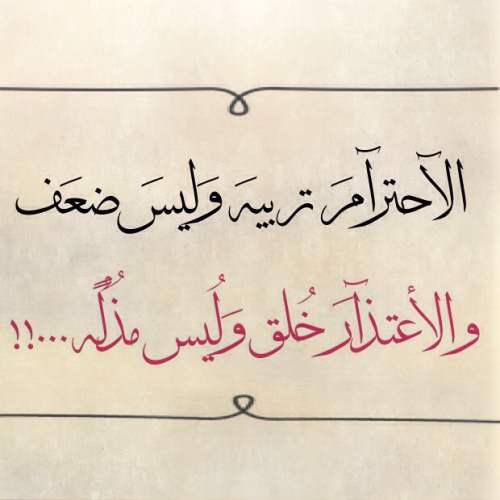 الآحترآمَ تربيه وَليسَ ضعَف
والأعتذآرَ خُلق وَلُيس مذُلًه...!!